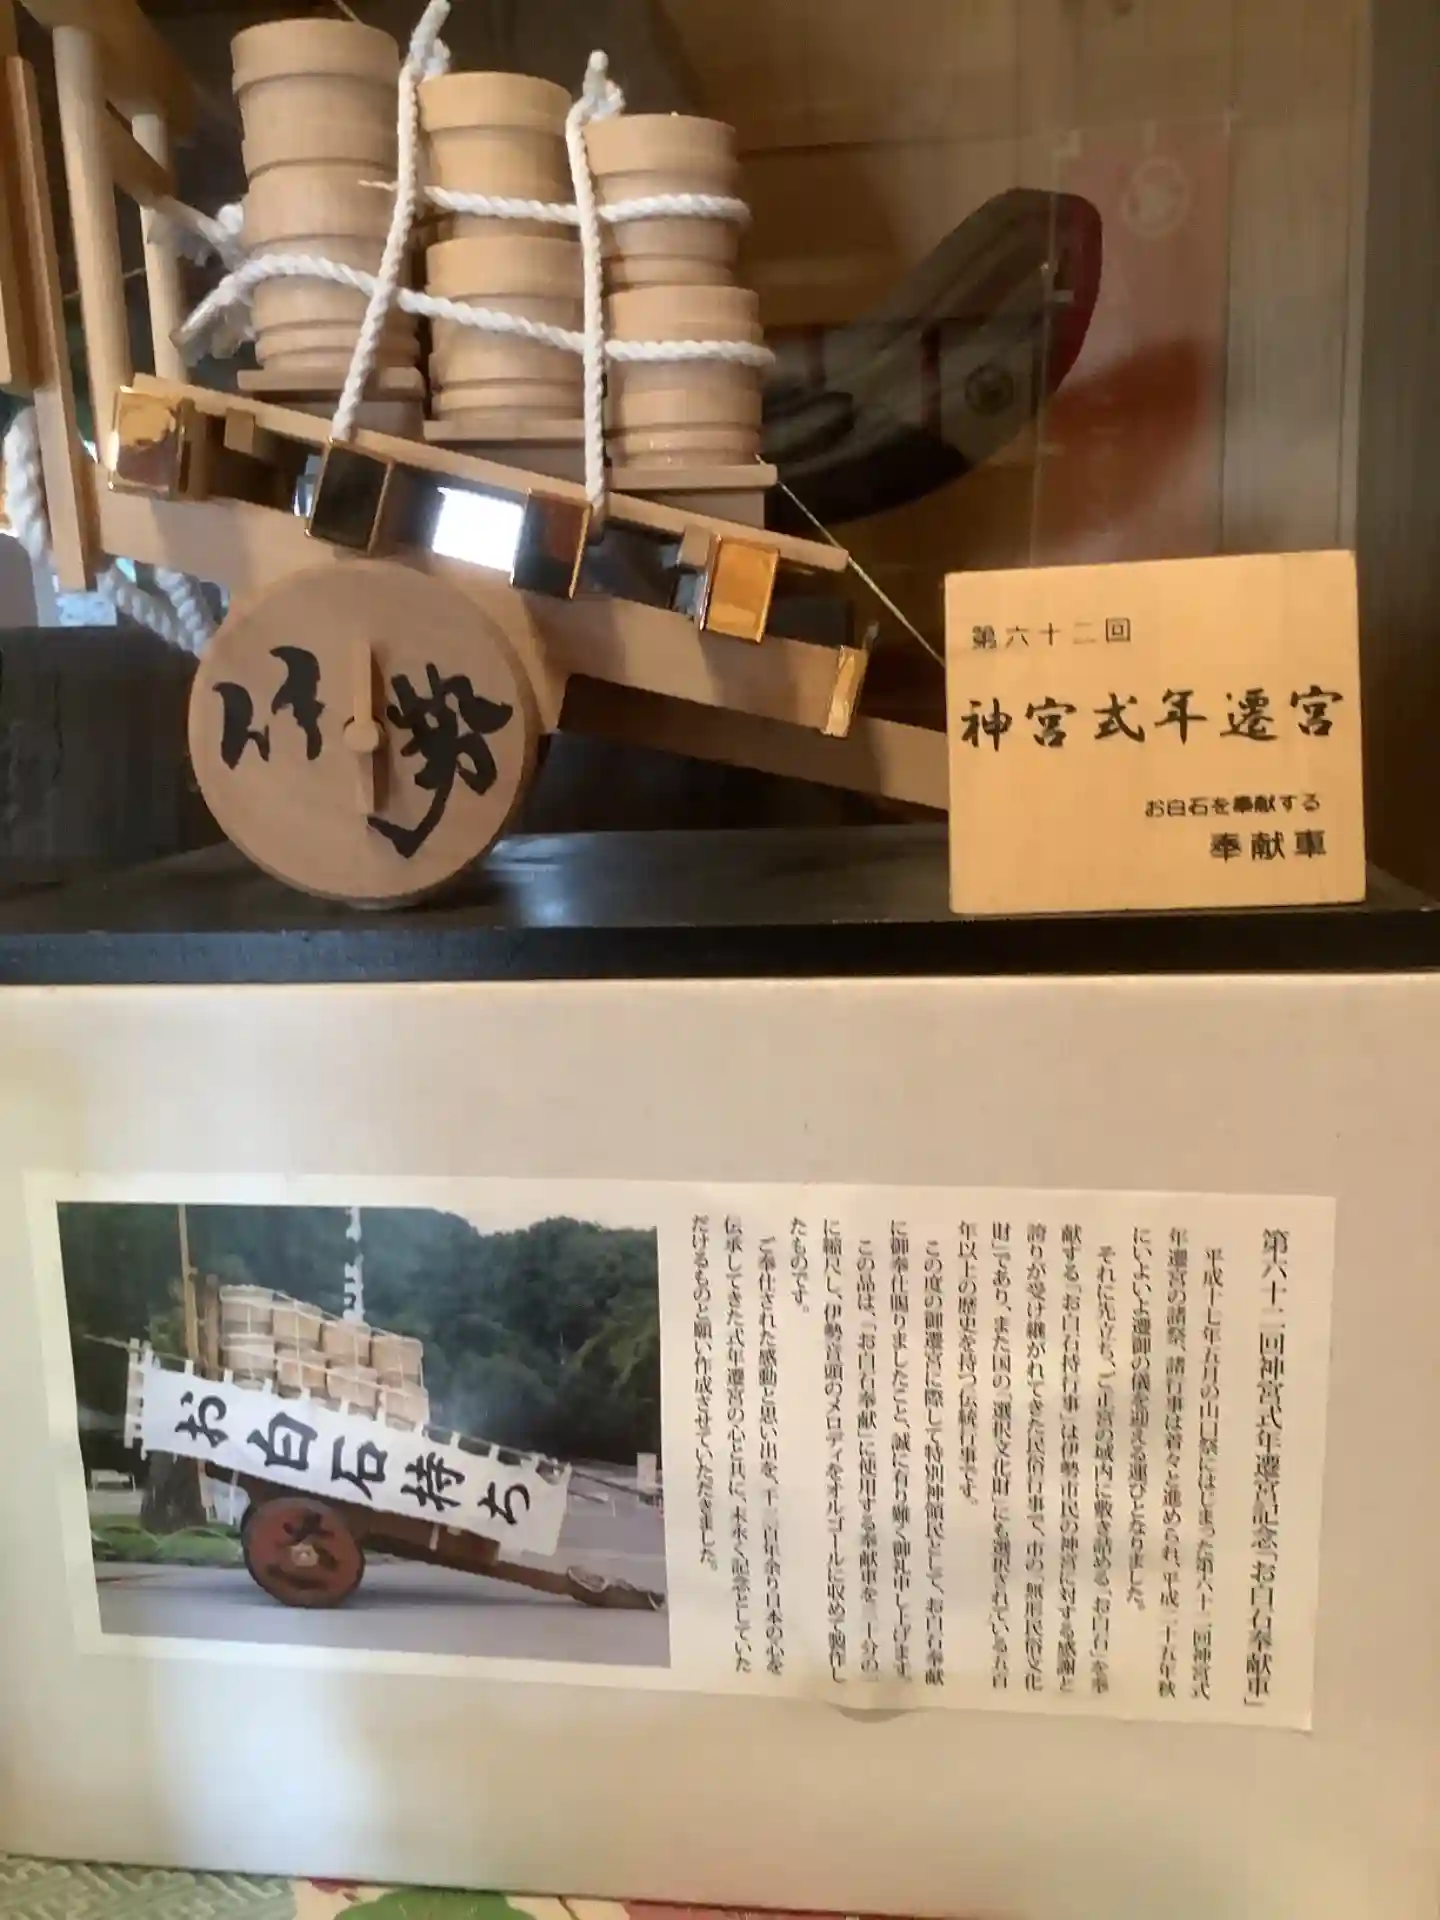 伊勢
第六十二回
神宮式年遷宮
お白石を奉献する
奉献車
第六十二回神宮式年遷宮記念「お白石奉献車」
平成十七年五月の山口祭にはじまった第六十二回神宮式
年遷宮の諸祭、諸行事は着々と進められ、平成二十五年秋
にいよいよ遷御の儀を迎える運びとなりました。
それに先立ち、ご正宮の域内に敷き詰める「お白石」を奉
献する「お白石持行事」は伊勢市民の神宮に対する感謝と
誇りが受け継がれてきた民俗行事で、市の「無形民俗文化
財」であり、また国の「選択文化財」にも選択されている五百
年以上の歴史を持つ伝統行事です。
この度の御遷宮に際して特別神領民として、お白石奉献
に御奉仕賜りましたこと、誠に有り難く御礼申し上げます。
この品は、「お白石奉献」に使用する奉献車を二十分の一
に縮尺し、伊勢音頭のメロディをオルゴールに収めて製作し
たものです。
ご奉仕された感動と思い出を、千三百年余り日本の心を
伝承してきた式年遷宮の心と共に、末永く記念としていた
だけるものと願い作成させていただきました。
お白石持ち